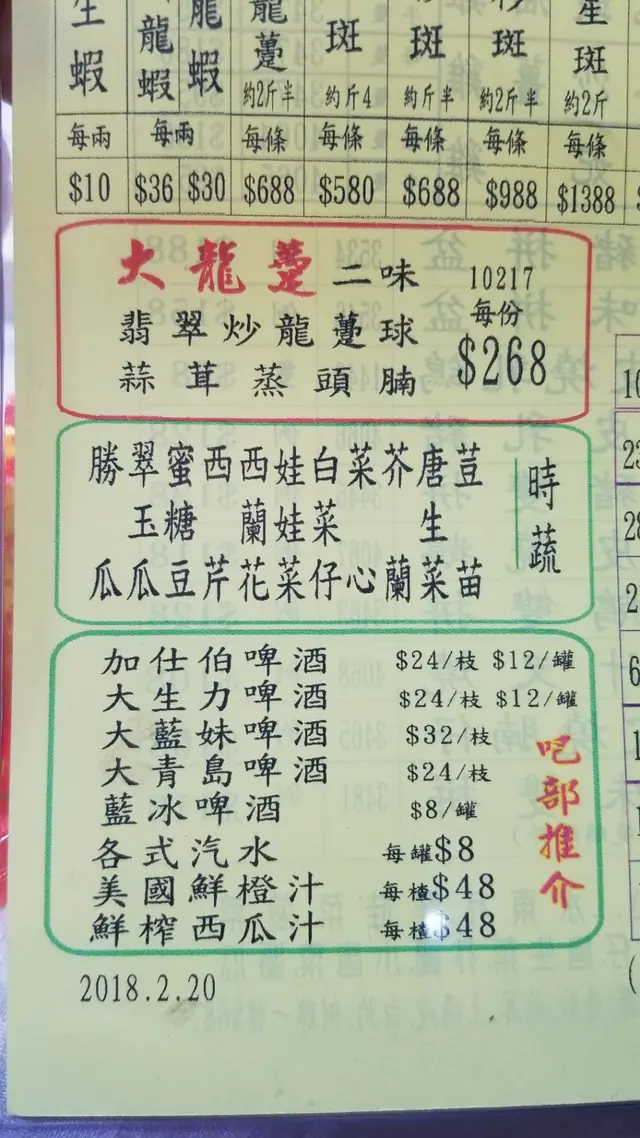 生 龍 龍 龍 斑 斑 斑 星
蝦 蝦 蝦 躉 斑
約2斤半 約斤4 約斤半 約2斤半 約2斤
每兩 每兩 每條 每條 每條 每條 每條
$10 $36 $30 $688 $580 $688 $988 $1388
大龍躉二味 10217
翡翠炒龍躉球 每份
蒜茸蒸頭腩 $268
勝翠蜜西西娃白菜芥唐荳 時
玉糖 蘭娃菜 生 蔬
瓜瓜豆芹花菜仔心蘭菜苗
加仕伯啤酒 $24/枝 $12/罐
大生力啤酒 $24/枝 $12/罐
大藍妹啤酒 $32/枝
大青島啤酒 $24/枝
藍冰啤酒 $8/罐
各式汽水 每罐$8
美國鮮橙汁 每楂$48
鮮榨西瓜汁 每楂$48
吧部推介
2018.2.20